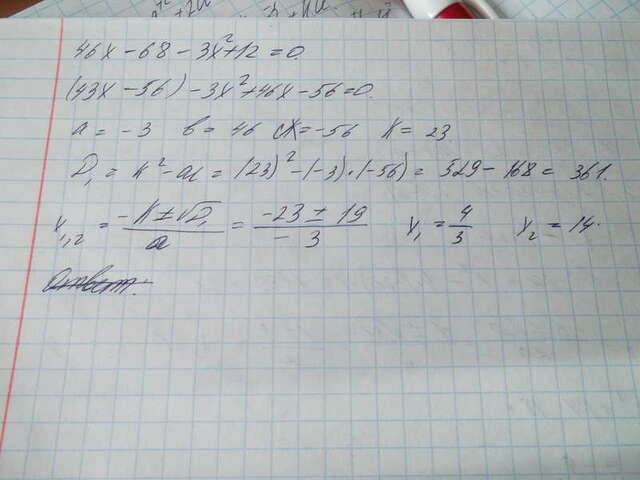 46x - 68 - 3x² + 12 = 0.
(43x - 56) - 3x² + 46x - 56 = 0.
a = -3 b = 46 c = -56 K = 23
D₁ = K² - ac = (23)² - (-3)·(-56) = 529 - 168 = 361.
x₁,₂ = (-K ± √D₁)/a = (-23 ± 19)/(-3) x₁ = 4/3 x₂ = 14.
Ответ: